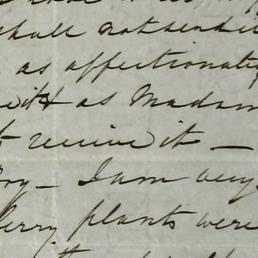 shall not send i
as affectionat
with as Madam
receive it —
— I am very
erry plants were